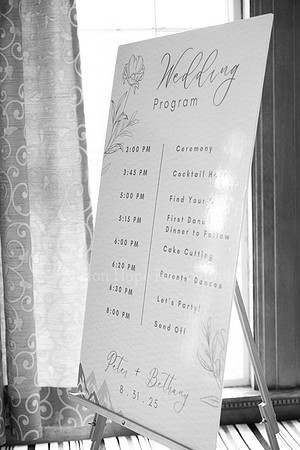 Wedding
Program
3:00 PM Ceremony
3:45 PM Cocktail
5:00 PM Find Your
5:15 PM First Dance
Dinner to Follow
6:00 PM Cake Cutting
6:20 PM Parents' Dances
6:30 PM Let's Party!
8:00 PM Send Off
Peter + Bethany
8.31.25